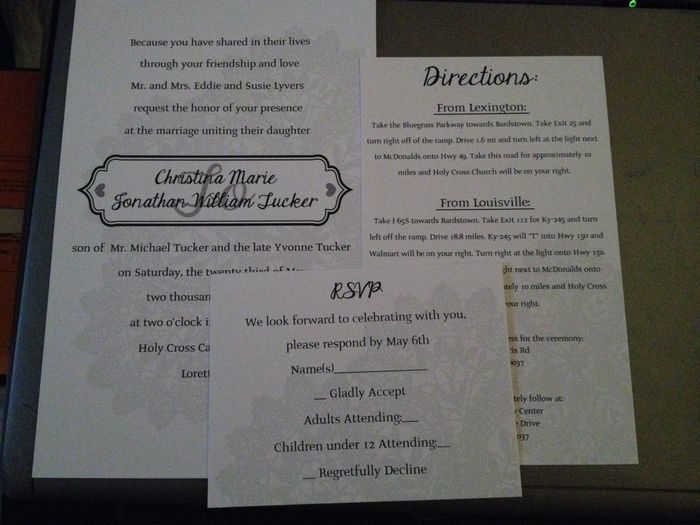 Because you have shared in their lives
through your friendship and love
Mr. and Mrs. Eddie and Susie Lyvers
request the honor of your presence
at the marriage uniting their daughter
Christina Marie
To
Jonathan William Tucker
son of Mr. Michael Tucker and the late Yvonne Tucker
on Saturday, the twenty third of
two thousan
at two o'clock i
Holy Cross Ca
Lorett
Directions:
From Lexington:
Take the Bluegrass Parkway towards Bardstown. Take Exit 25 and
turn right off of the ramp. Drive 1.6 mi and turn left at the light next
to McDonalds onto Hwy 49. Take this road for approximately 10
miles and Holy Cross Church will be on your right.
From Louisville:
Take I-65S towards Bardstown. Take Exit 112 for Ky-245 and turn
left off the ramp. Drive 18.8 miles. Ky-245 will "T" into Hwy 150 and
Walmart will be on your right. Turn right at the light onto Hwy 150.
ht next to McDonalds onto
ately 10 miles and Holy Cross
our right.
ess for the ceremony:
is Rd
0037
tely follow at:
Center
Drive
037
RSVP
We look forward to celebrating with you,
please respond by May 6th
Name(s)_______________
__ Gladly Accept
Adults Attending:__
Children under 12 Attending:__
__ Regretfully Decline